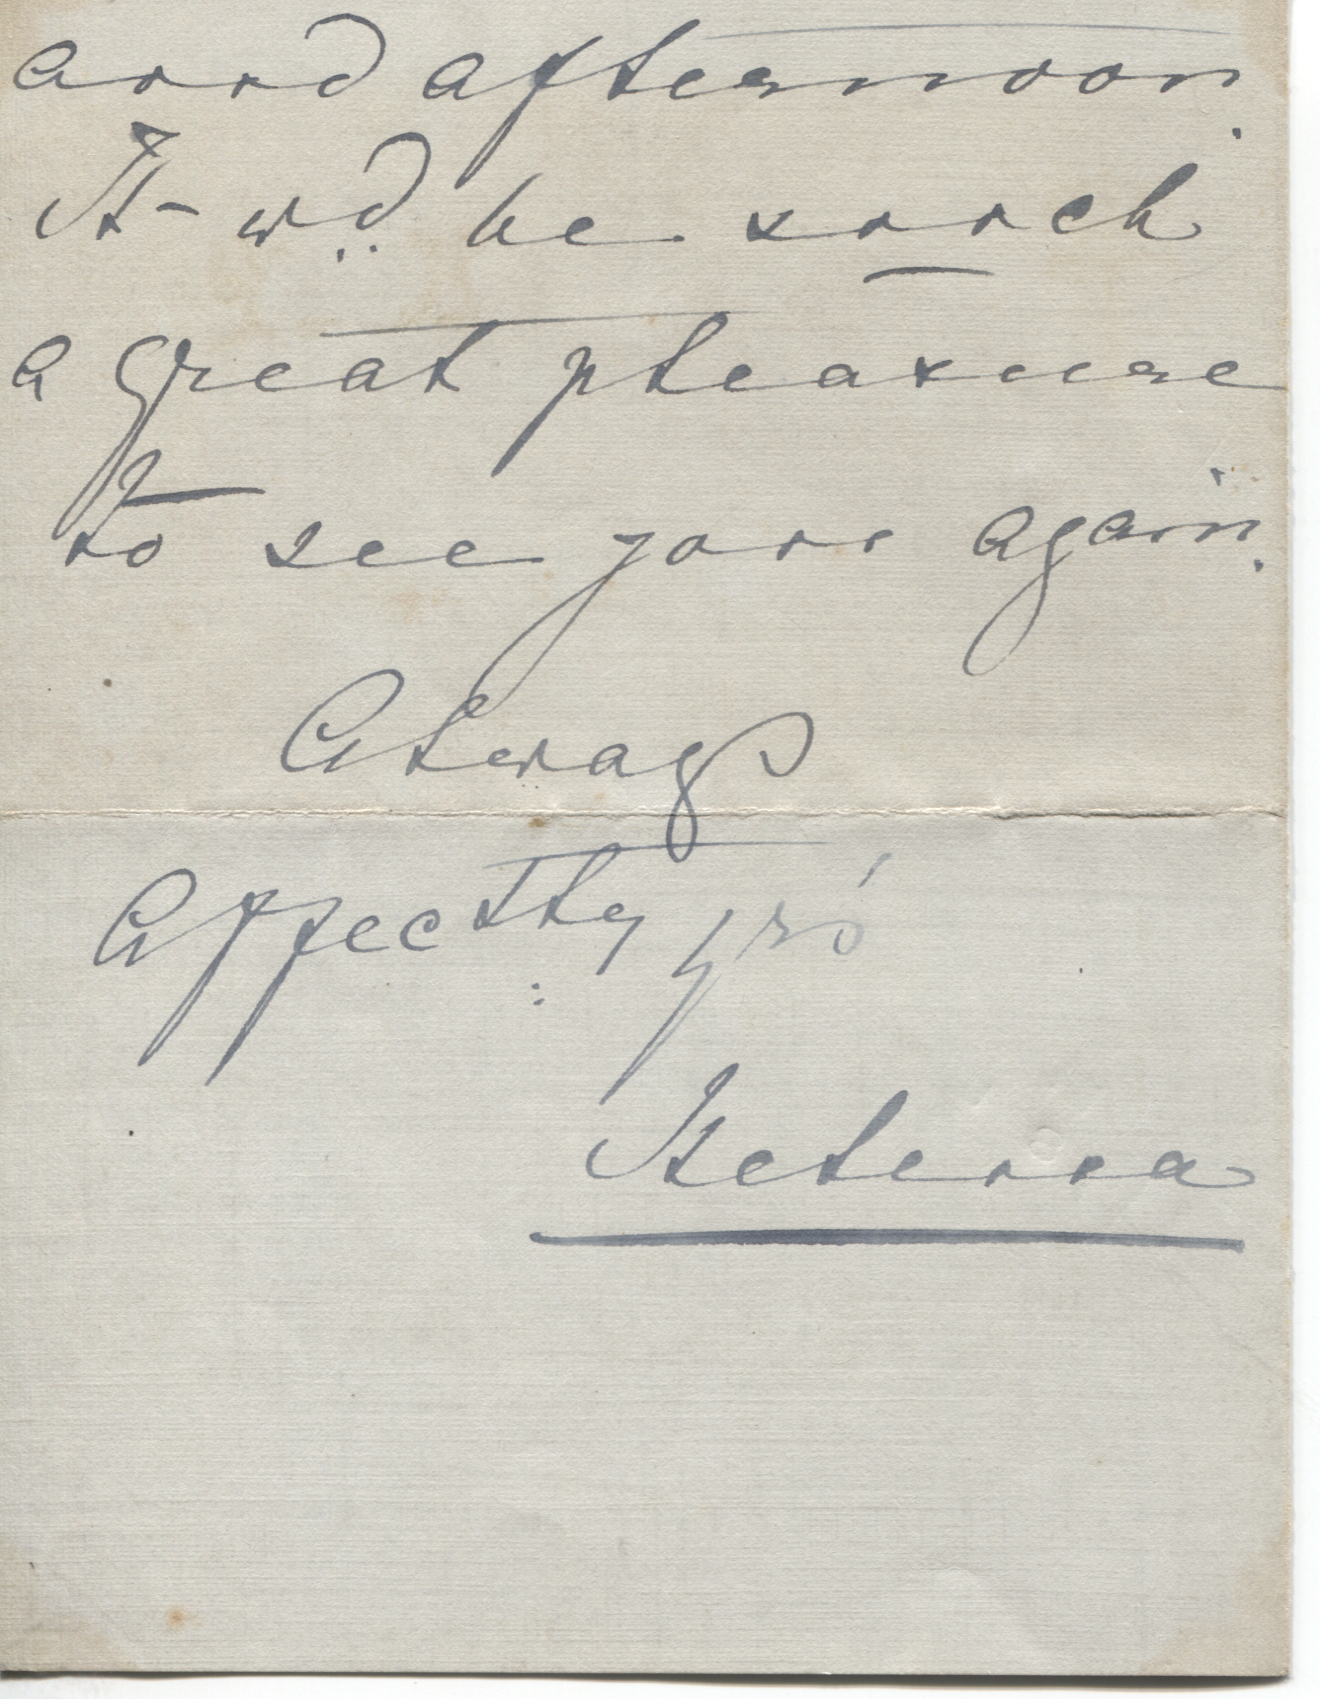 and afternoon.
It wd. be such
a great pleasure
to see you again.
Always
Affectly yrs
Helena